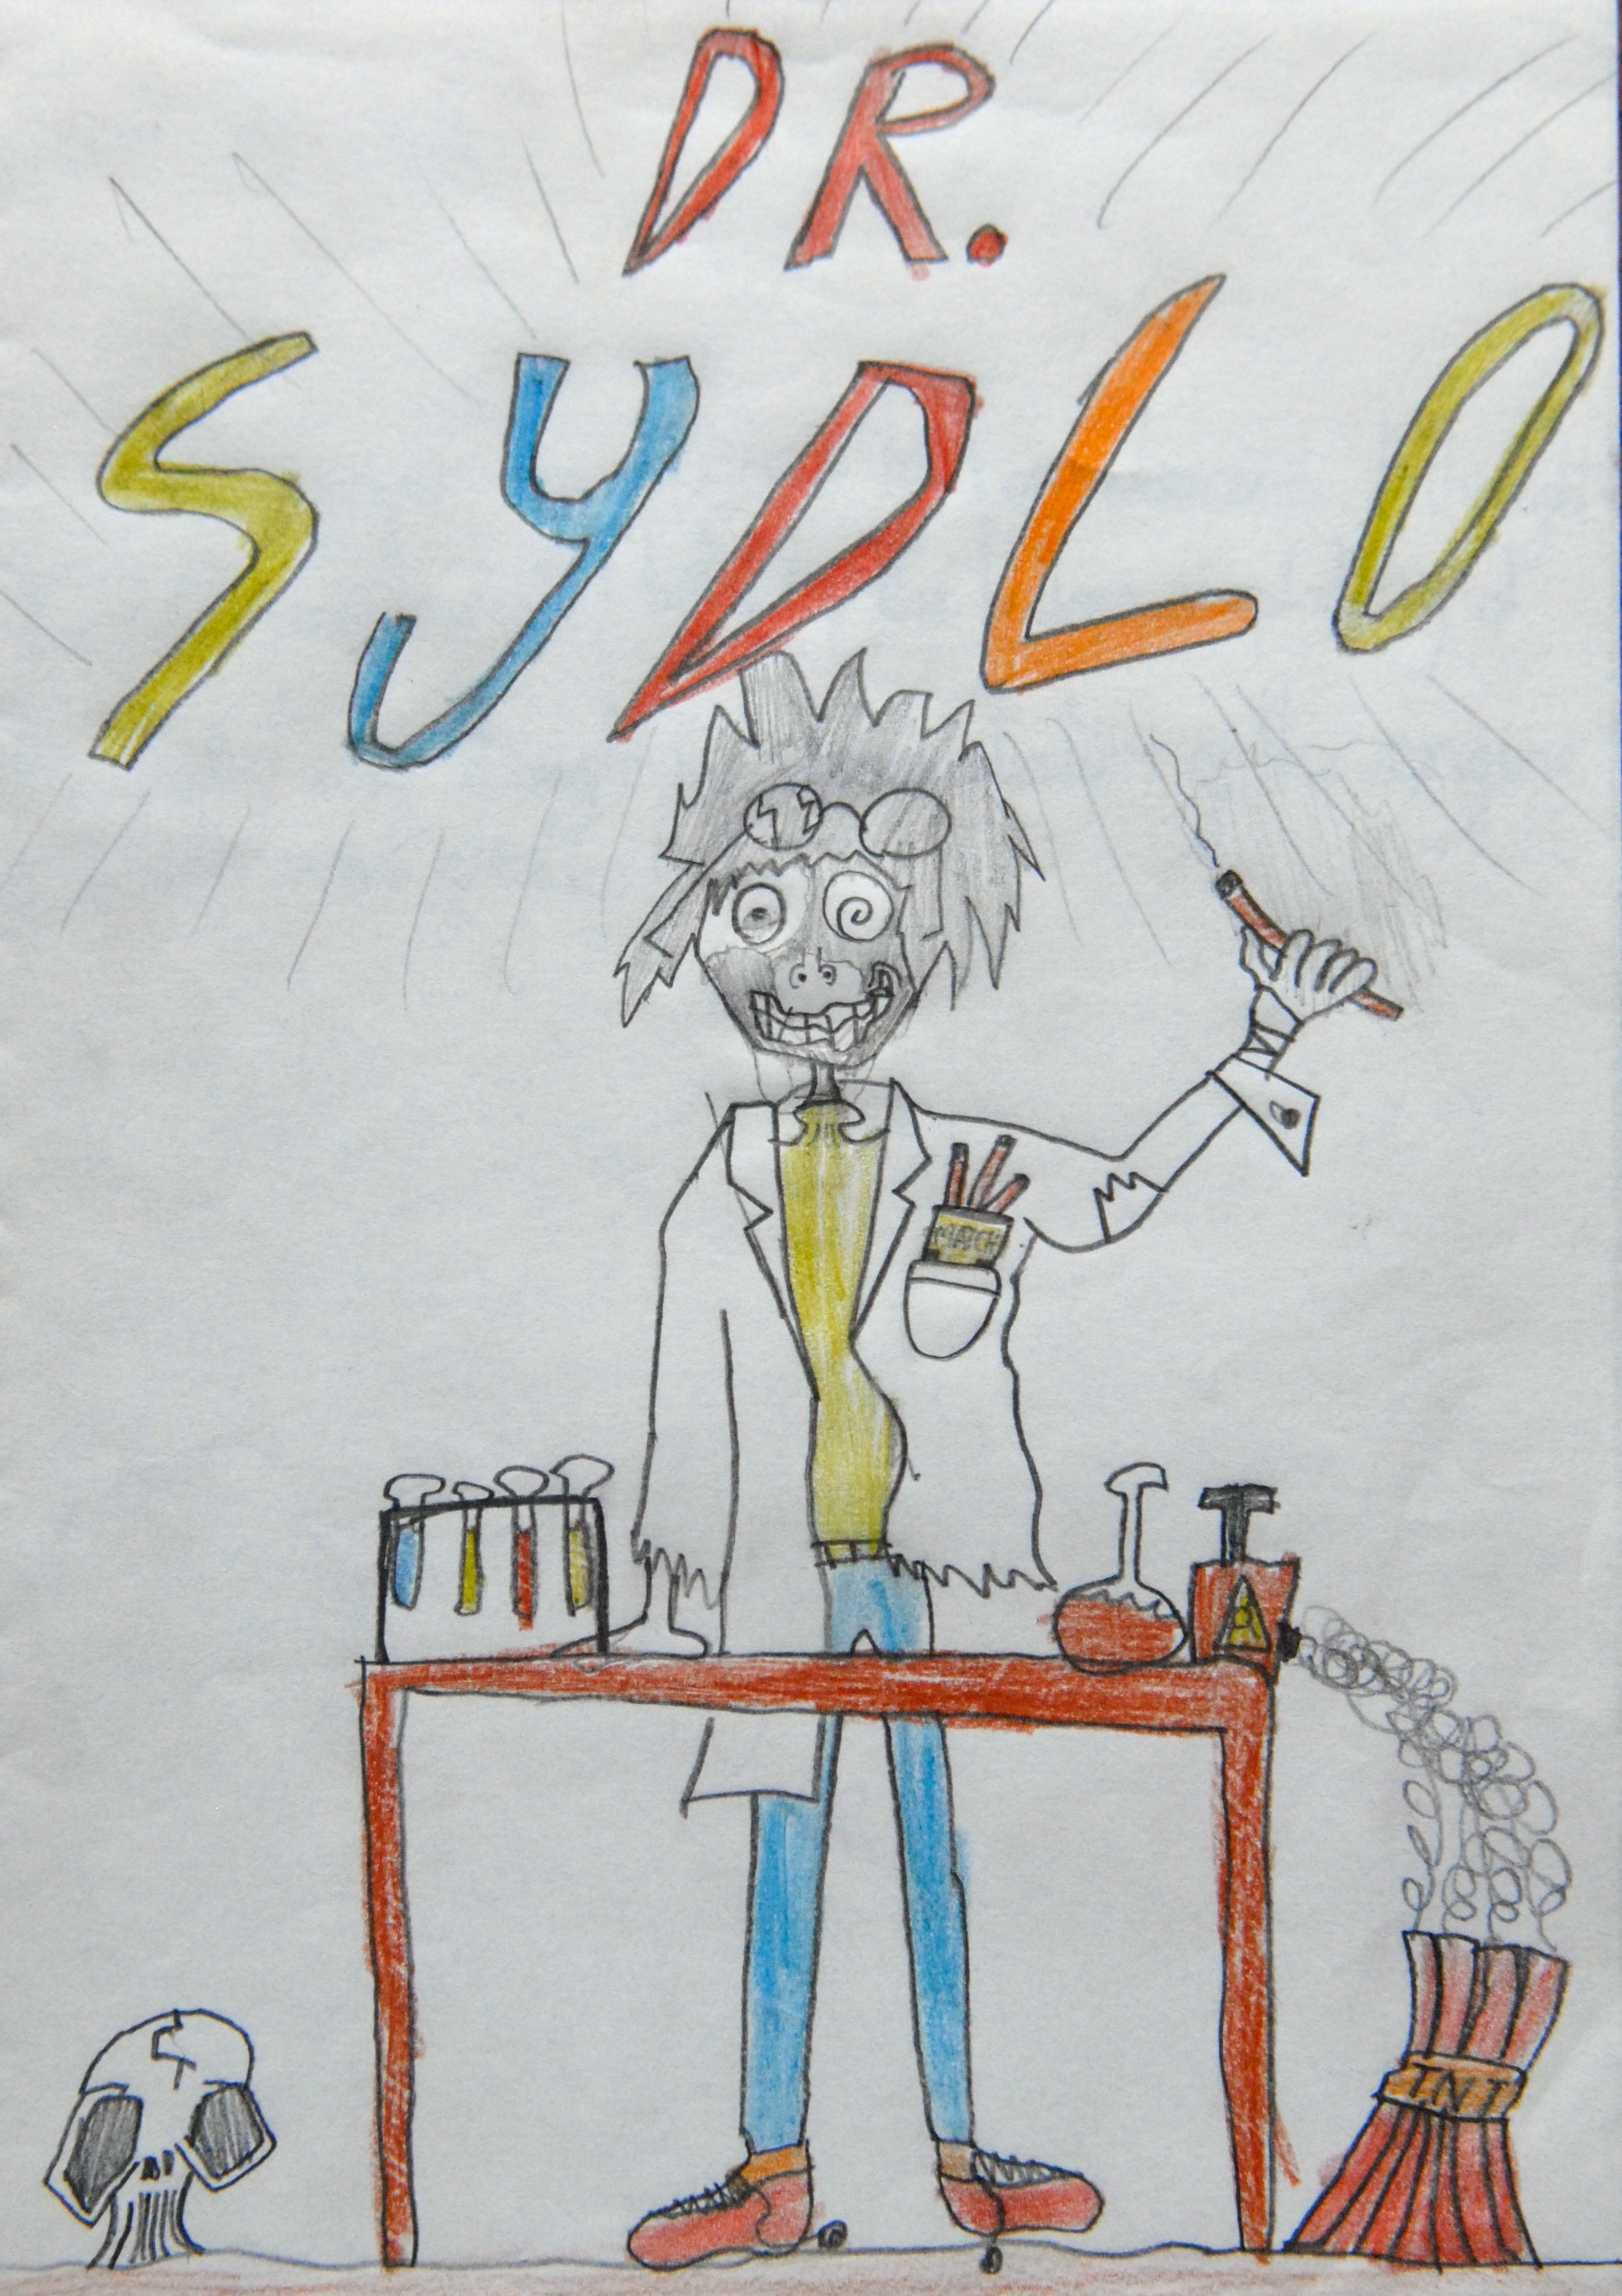 DR.
SYDLO
MATCH
TNT